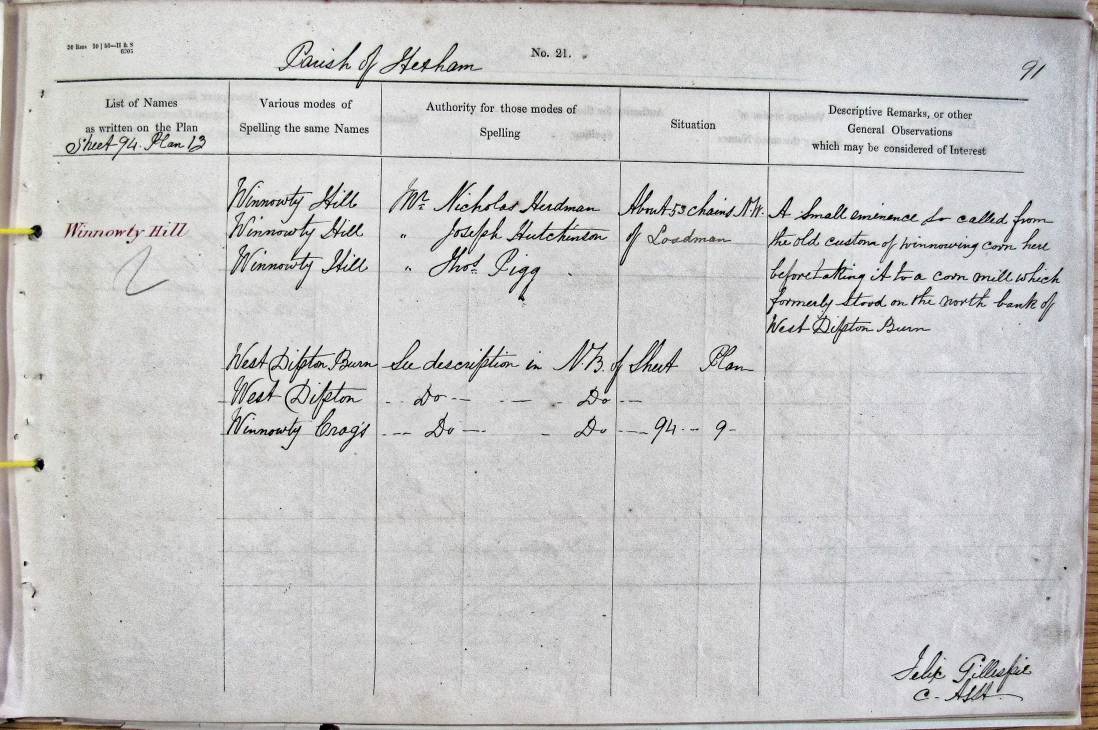 Parish of Hexham
No. 21.
91
List of Names
as written on the Plan
Sheet 94. Plan 13
Various modes of
Spelling the same Names
Authority for those modes of
Spelling
Situation
Descriptive Remarks, or other
General Observations
which may be considered of Interest
Winnowty Hill
Winnowty Hill
Winnowty Hill
Winnowty Hill
Mr. Nicholas Herdman
" Joseph Hutchinson
" Thos. Pigg
About 53 chains N.W.
of Loadman
A small eminence so called from
the old custom of winnowing corn here
before taking it to a corn mill which
formerly stood on the north bank of
West Dipton Burn
West Dipton Burn See description in N.B. of Sheet Plan
West Dipton Do Do
Winnowty Crags Do Do 94 9
Felix Gillespie
C. Asst.